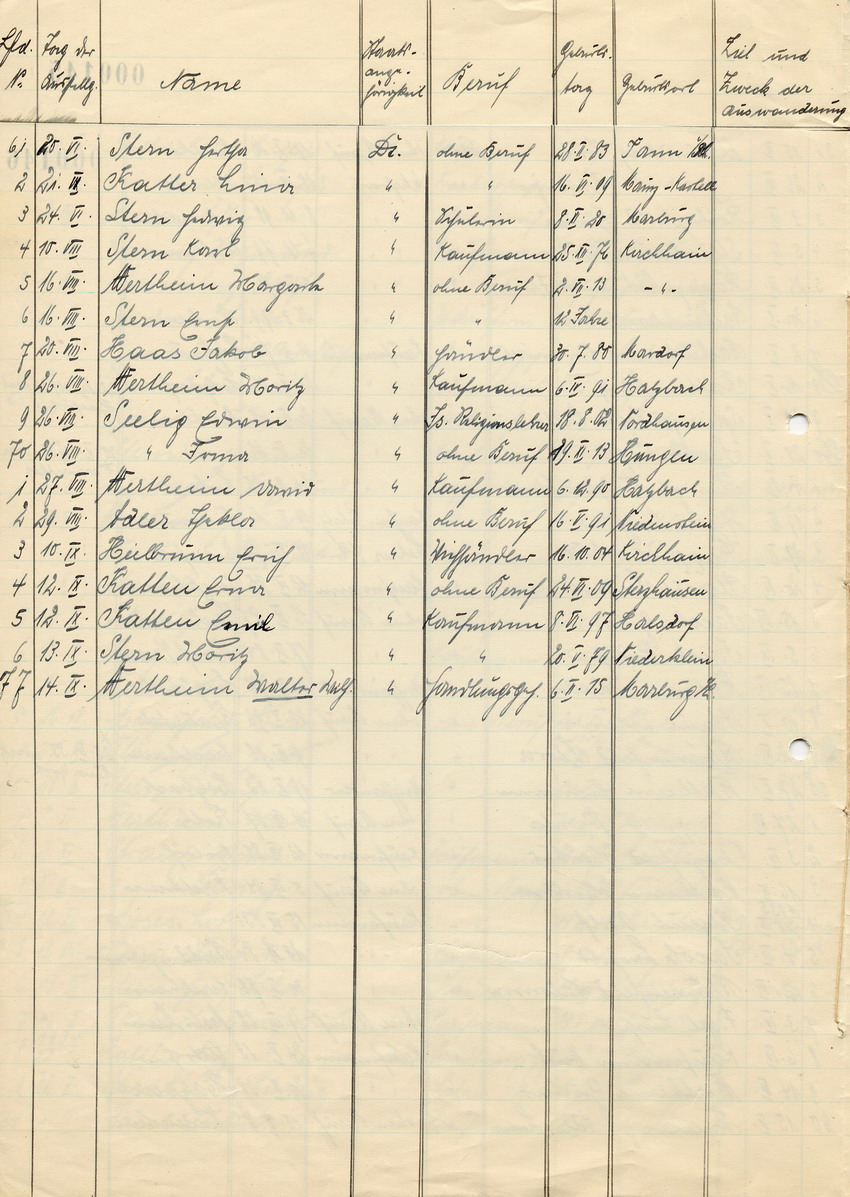 Lfd. Nr. Tag der Ausstellg. Name Staats-ange-hörigkeit Beruf Geburts-tag Geburtsort Ziel und Zweck der Auswanderung
61 20. VI. Stern Hertha Dt. ohne Beruf 28. II. 83 Tann
2 21. Katten " " 16. VI. 09 Mainz-Kastell
3 24. VI. Stern Hedwig " Schülerin 8. II. 20 Marburg
4 10. VIII Stern Karl " Kaufmann 25. XII. 76 Kirchhain
5 16. VIII. Wertheim " ohne Beruf 2. VII. 13 - " -
6 16. VIII. Stern " " 12 Jahre
7 20. VIII. Haas Jakob " Händler 30. 7. 80 Mardorf
8 26. VIII. Wertheim Moritz " Kaufmann 6. IV. 91 Hatzbach
9 26. VIII. Seelig Edwin " Js. Religionslehrer 18. 8. 02 Nordhausen
70 26. VIII. " " ohne Beruf 29. II. 13 Hungen
1 27. VIII. Wertheim David " Kaufmann 6. 12. 90 Hatzbach
2 29. VIII. Adler Thekla " ohne Beruf 16. V. 91 Niedenstein
3 10. IX Heilbrunn Erich " Viehhändler 16. 10. 04 Kirchhain
4 12. IX. Katten Erna " ohne Beruf 24. VI. 09 Sterzhausen
5 12. IX Katten Emil " Kaufmann 8. VI. 97 Halsdorf
6 13. IX Stern Moritz " " 20. V. 79 Niederklein
77 14. IX. Wertheim Walter " Handlungsgeh. 6. II. 15 Marburg